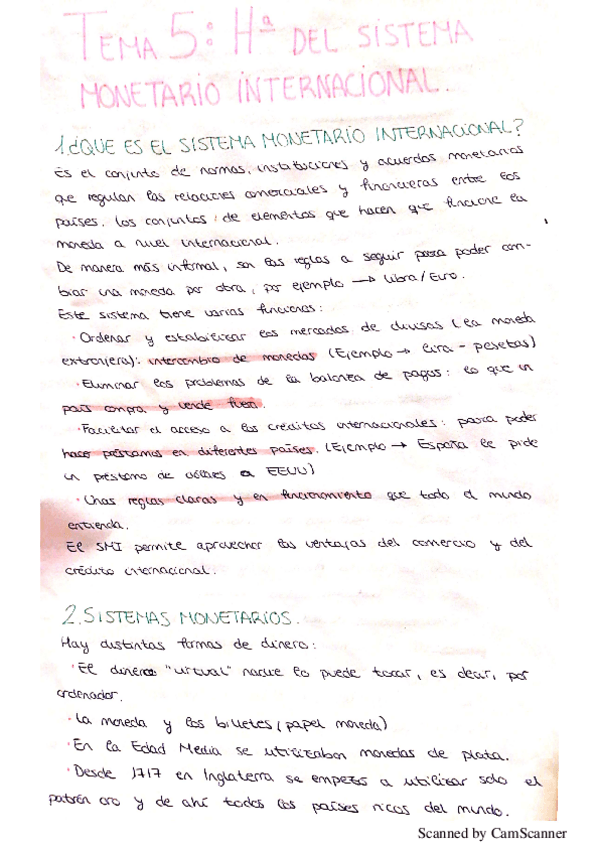 TEMA 5: Hª DEL SISTEMA
MONETARIO INTERNACIONAL.
1.¿QUE ES EL SISTEMA MONETARIO INTERNACIONAL?
Es el conjunto de normas, instituciones y acuerdos monetarios
que regulan las relaciones comerciales y financieras entre los
países. Los conjuntos de elementos que hacen que funcione la
moneda a nivel internacional.
De manera más informal, son las reglas a seguir para poder cam-
biar una moneda por otra, por ejemplo → libra/Euro.
Este sistema tiene varias funciones:
· Ordenar y estabilizar los mercados de divisas (la moneda
extranjera): intercambio de monedas (Ejemplo → lira - pesetas)
· Eliminar los problemas de la balanza de pagos: lo que un
país compra y vende fuera.
· Facilitar el acceso a los créditos internacionales: para poder
hacer préstamos en diferentes países. (Ejemplo → España le pide
un préstamo de dólares a EEUU)
· Unas reglas claras y en funcionamiento que todo el mundo
entienda.
El SMI permite aprovechar las ventajas del comercio y del
crédito internacional.
2.SISTEMAS MONETARIOS.
Hay distintas formas de dinero:
· El dinero "virtual" nadie lo puede tocar, es decir, por
ordenador.
· La moneda y los billetes (papel moneda)
· En la Edad Media se utilizaban monedas de plata.
· Desde 1717 en Inglaterra se empezó a utilizar solo el
patrón oro y de ahí todos los países ricos del mundo.
Scanned by CamScanner